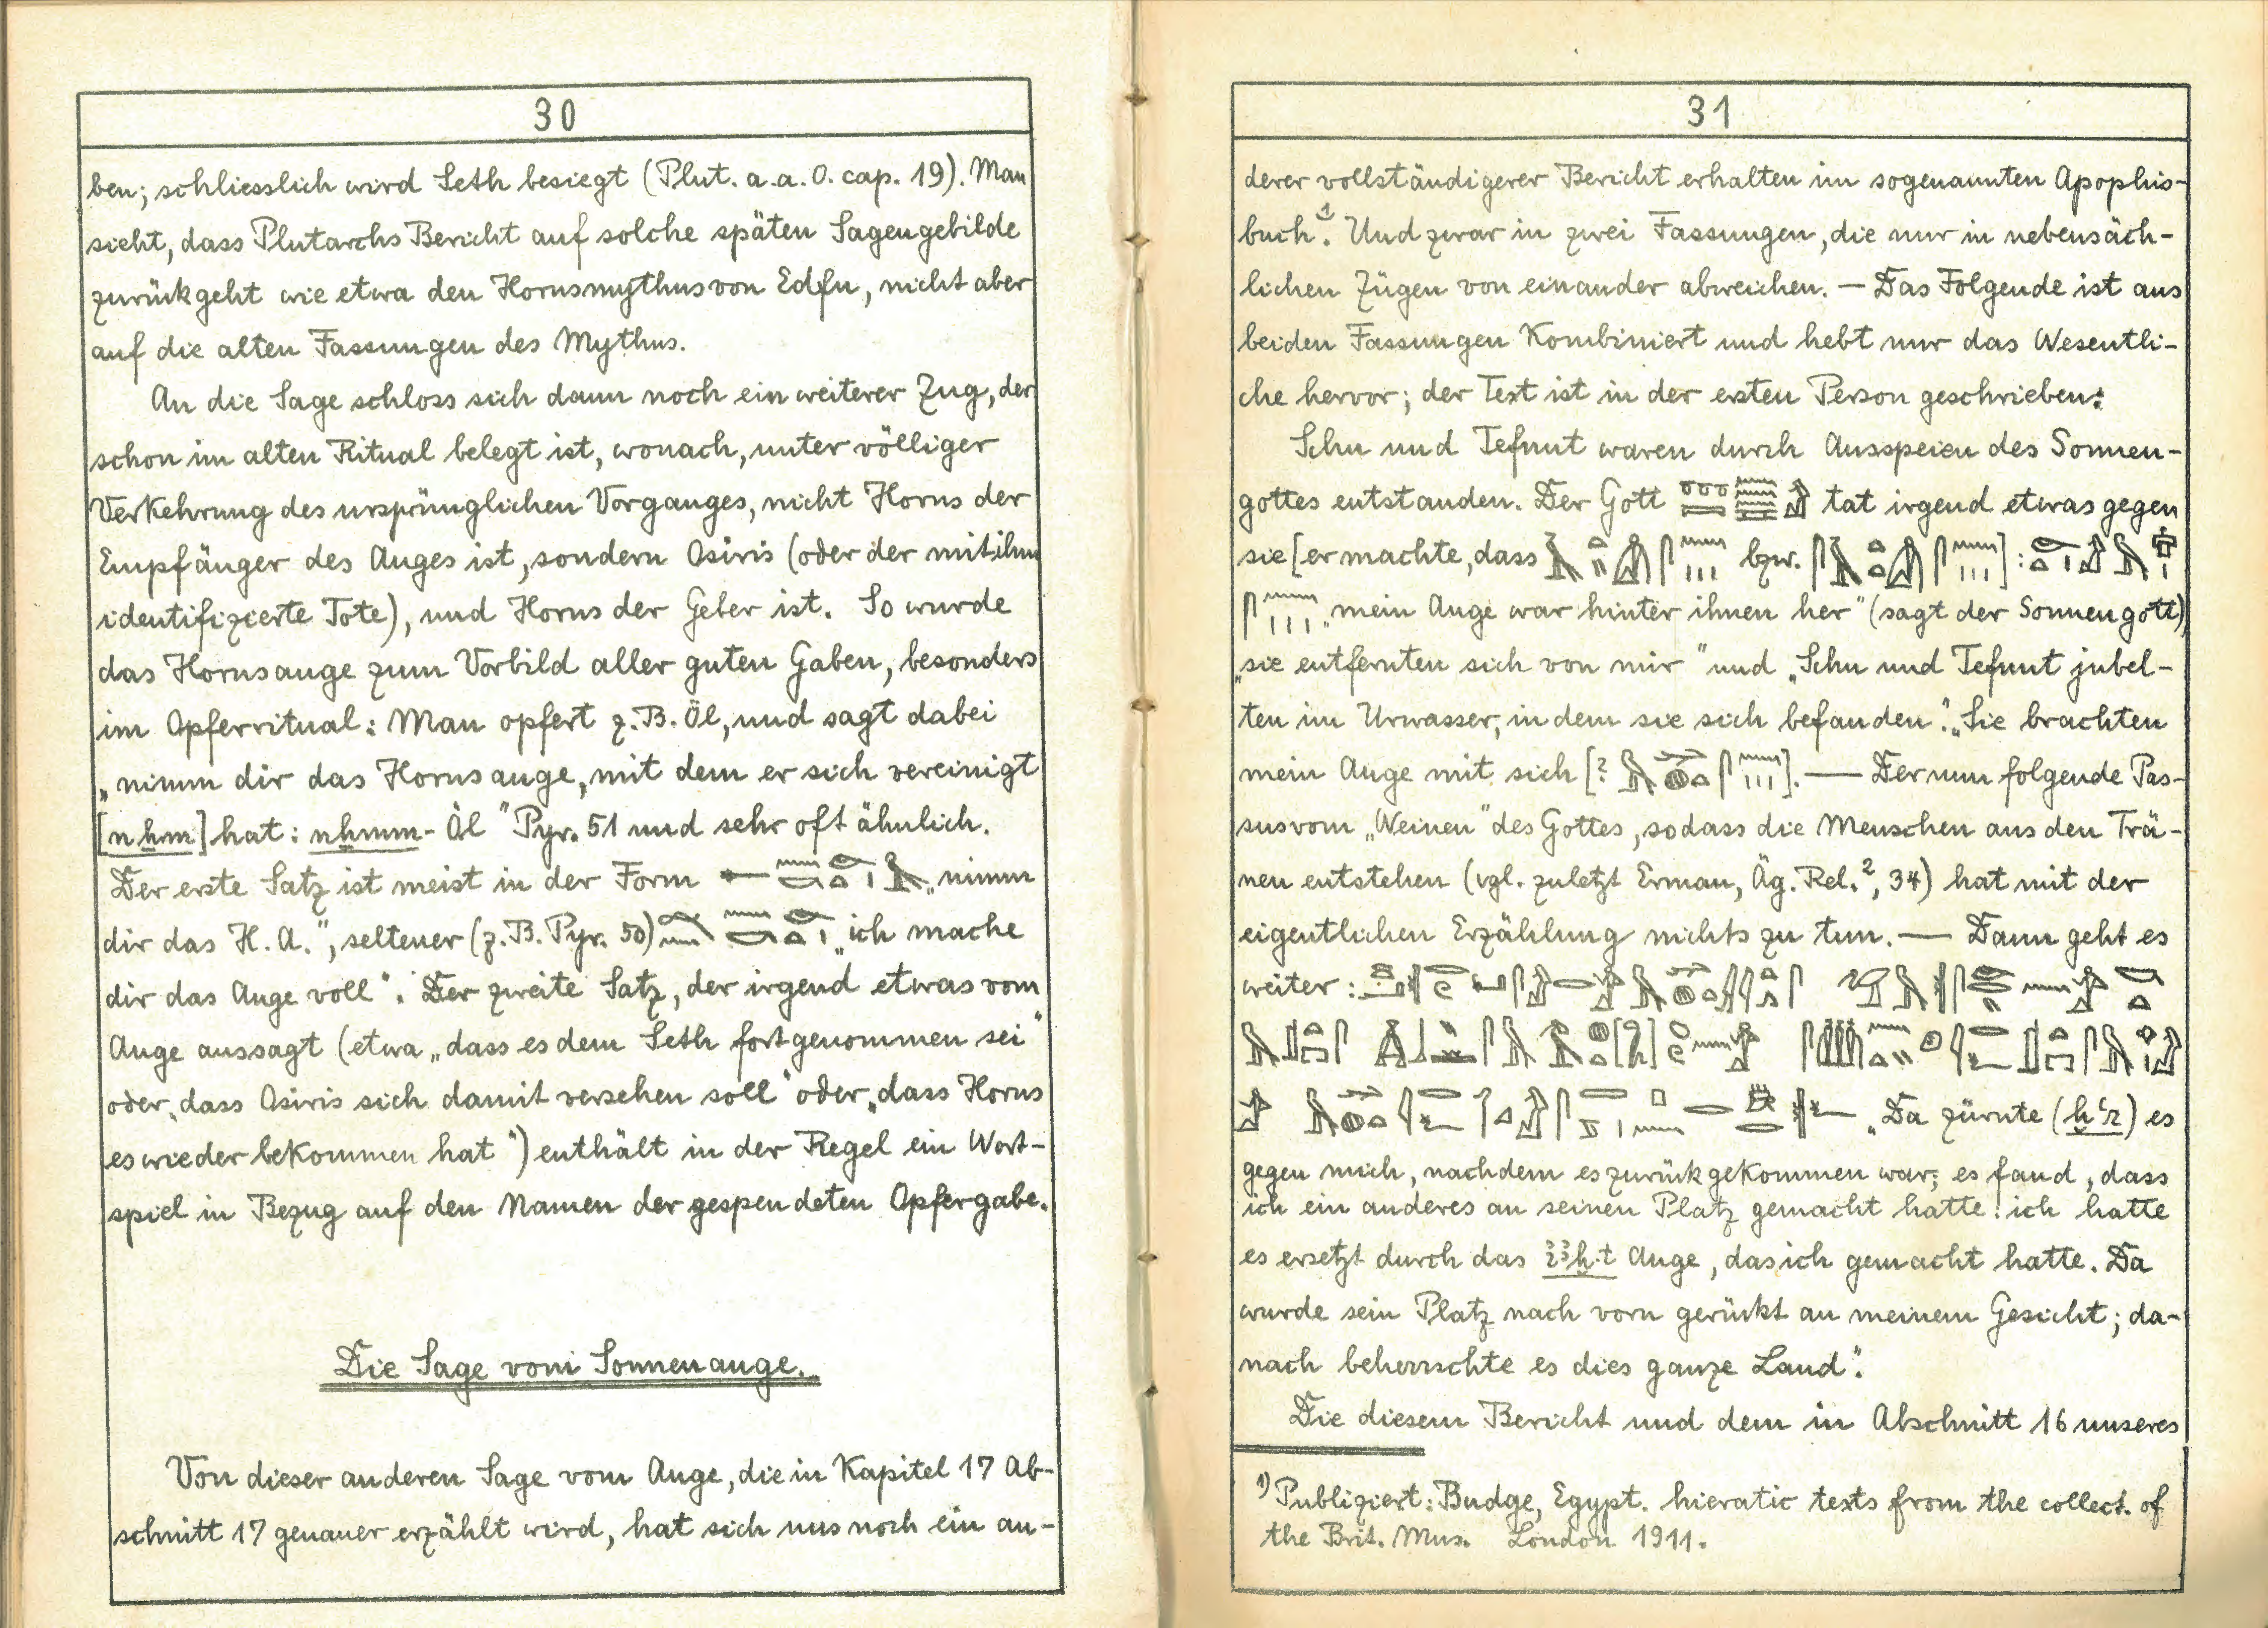 30
ben; schliesslich wird Seth besiegt (Plut. a.a.O. cap. 19). Man
sieht, dass Plutarchs Bericht auf solche späten Sagengebilde
zurückgeht wie etwa den Horusmythus von Edfu, nicht aber
auf die alten Fassungen des Mythus.
An die Sage schloss sich dann noch ein weiterer Zug, der
schon im alten Ritual belegt ist, wonach, unter völliger
Verkehrung des ursprünglichen Vorganges, nicht Horus der
Empfänger des Auges ist, sondern Osiris (oder der mit ihm
identifizierte Tote), und Horus der Geber ist. So wurde
das Horusauge zum Vorbild aller guten Gaben, besonders
im Opferritual: Man opfert z.B. Öl, und sagt dabei
„nimm dir das Horusauge, mit dem er sich vereinigt
[nẖm] hat: nẖmm-Öl" Pyr. 51 und sehr oft ähnlich.
Der erste Satz ist meist in der Form „nimm
dir das H.A.", seltener (z.B. Pyr. 50) „ich mache
dir das Auge voll". Der zweite Satz, der irgend etwas vom
Auge aussagt (etwa „dass es dem Seth fortgenommen sei"
oder „dass Osiris sich damit versehen soll" oder „dass Horus
es wieder bekommen hat") enthält in der Regel ein Wort-
spiel in Bezug auf den Namen der gespendeten Opfergabe.
Die Sage vom Sonnenauge.
Von dieser anderen Sage vom Auge, die in Kapitel 17 Ab-
schnitt 17 genauer erzählt wird, hat sich uns noch ein an-
31
derer vollständigerer Bericht erhalten im sogenannten Apophis-
buch¹. Und zwar in zwei Fassungen, die nur in nebensäch-
lichen Zügen von einander abweichen. — Das Folgende ist aus
beiden Fassungen kombiniert und hebt nur das Wesentli-
che hervor; der Text ist in der ersten Person geschrieben:
Schu und Tefnut waren durch Ausspeien des Sonnen-
gottes entstanden. Der Gott tat irgend etwas gegen
sie [er machte, dass bzw. ]:
„mein Auge war hinter ihnen her" (sagt der Sonnengott)
„sie entfernten sich von mir" und „Schu und Tefnut jubel-
ten im Urwasser, in dem sie sich befanden". „Sie brachten
mein Auge mit sich [? ]. — Der nun folgende Pas-
sus vom „Weinen" des Gottes, sodass die Menschen aus den Trä-
nen entstehen (vgl. zuletzt Erman, Äg. Rel.², 34) hat mit der
eigentlichen Erzählung nichts zu tun. — Dann geht es
weiter:
„Da zürnte (ẖꜥr) es
gegen mich, nachdem es zurückgekommen war; es fand, dass
ich ein anderes an seinen Platz gemacht hatte: ich hatte
es ersetzt durch das Auge, das ich gemacht hatte. Da
wurde sein Platz nach vorn gerückt an meinem Gesicht; da-
nach beherrschte es dies ganze Land".
Die diesem Bericht und dem in Abschnitt 16 unseres
1) Publiziert: Budge, Egypt. hieratic texts from the collect. of
the Brit. Mus. London 1911.